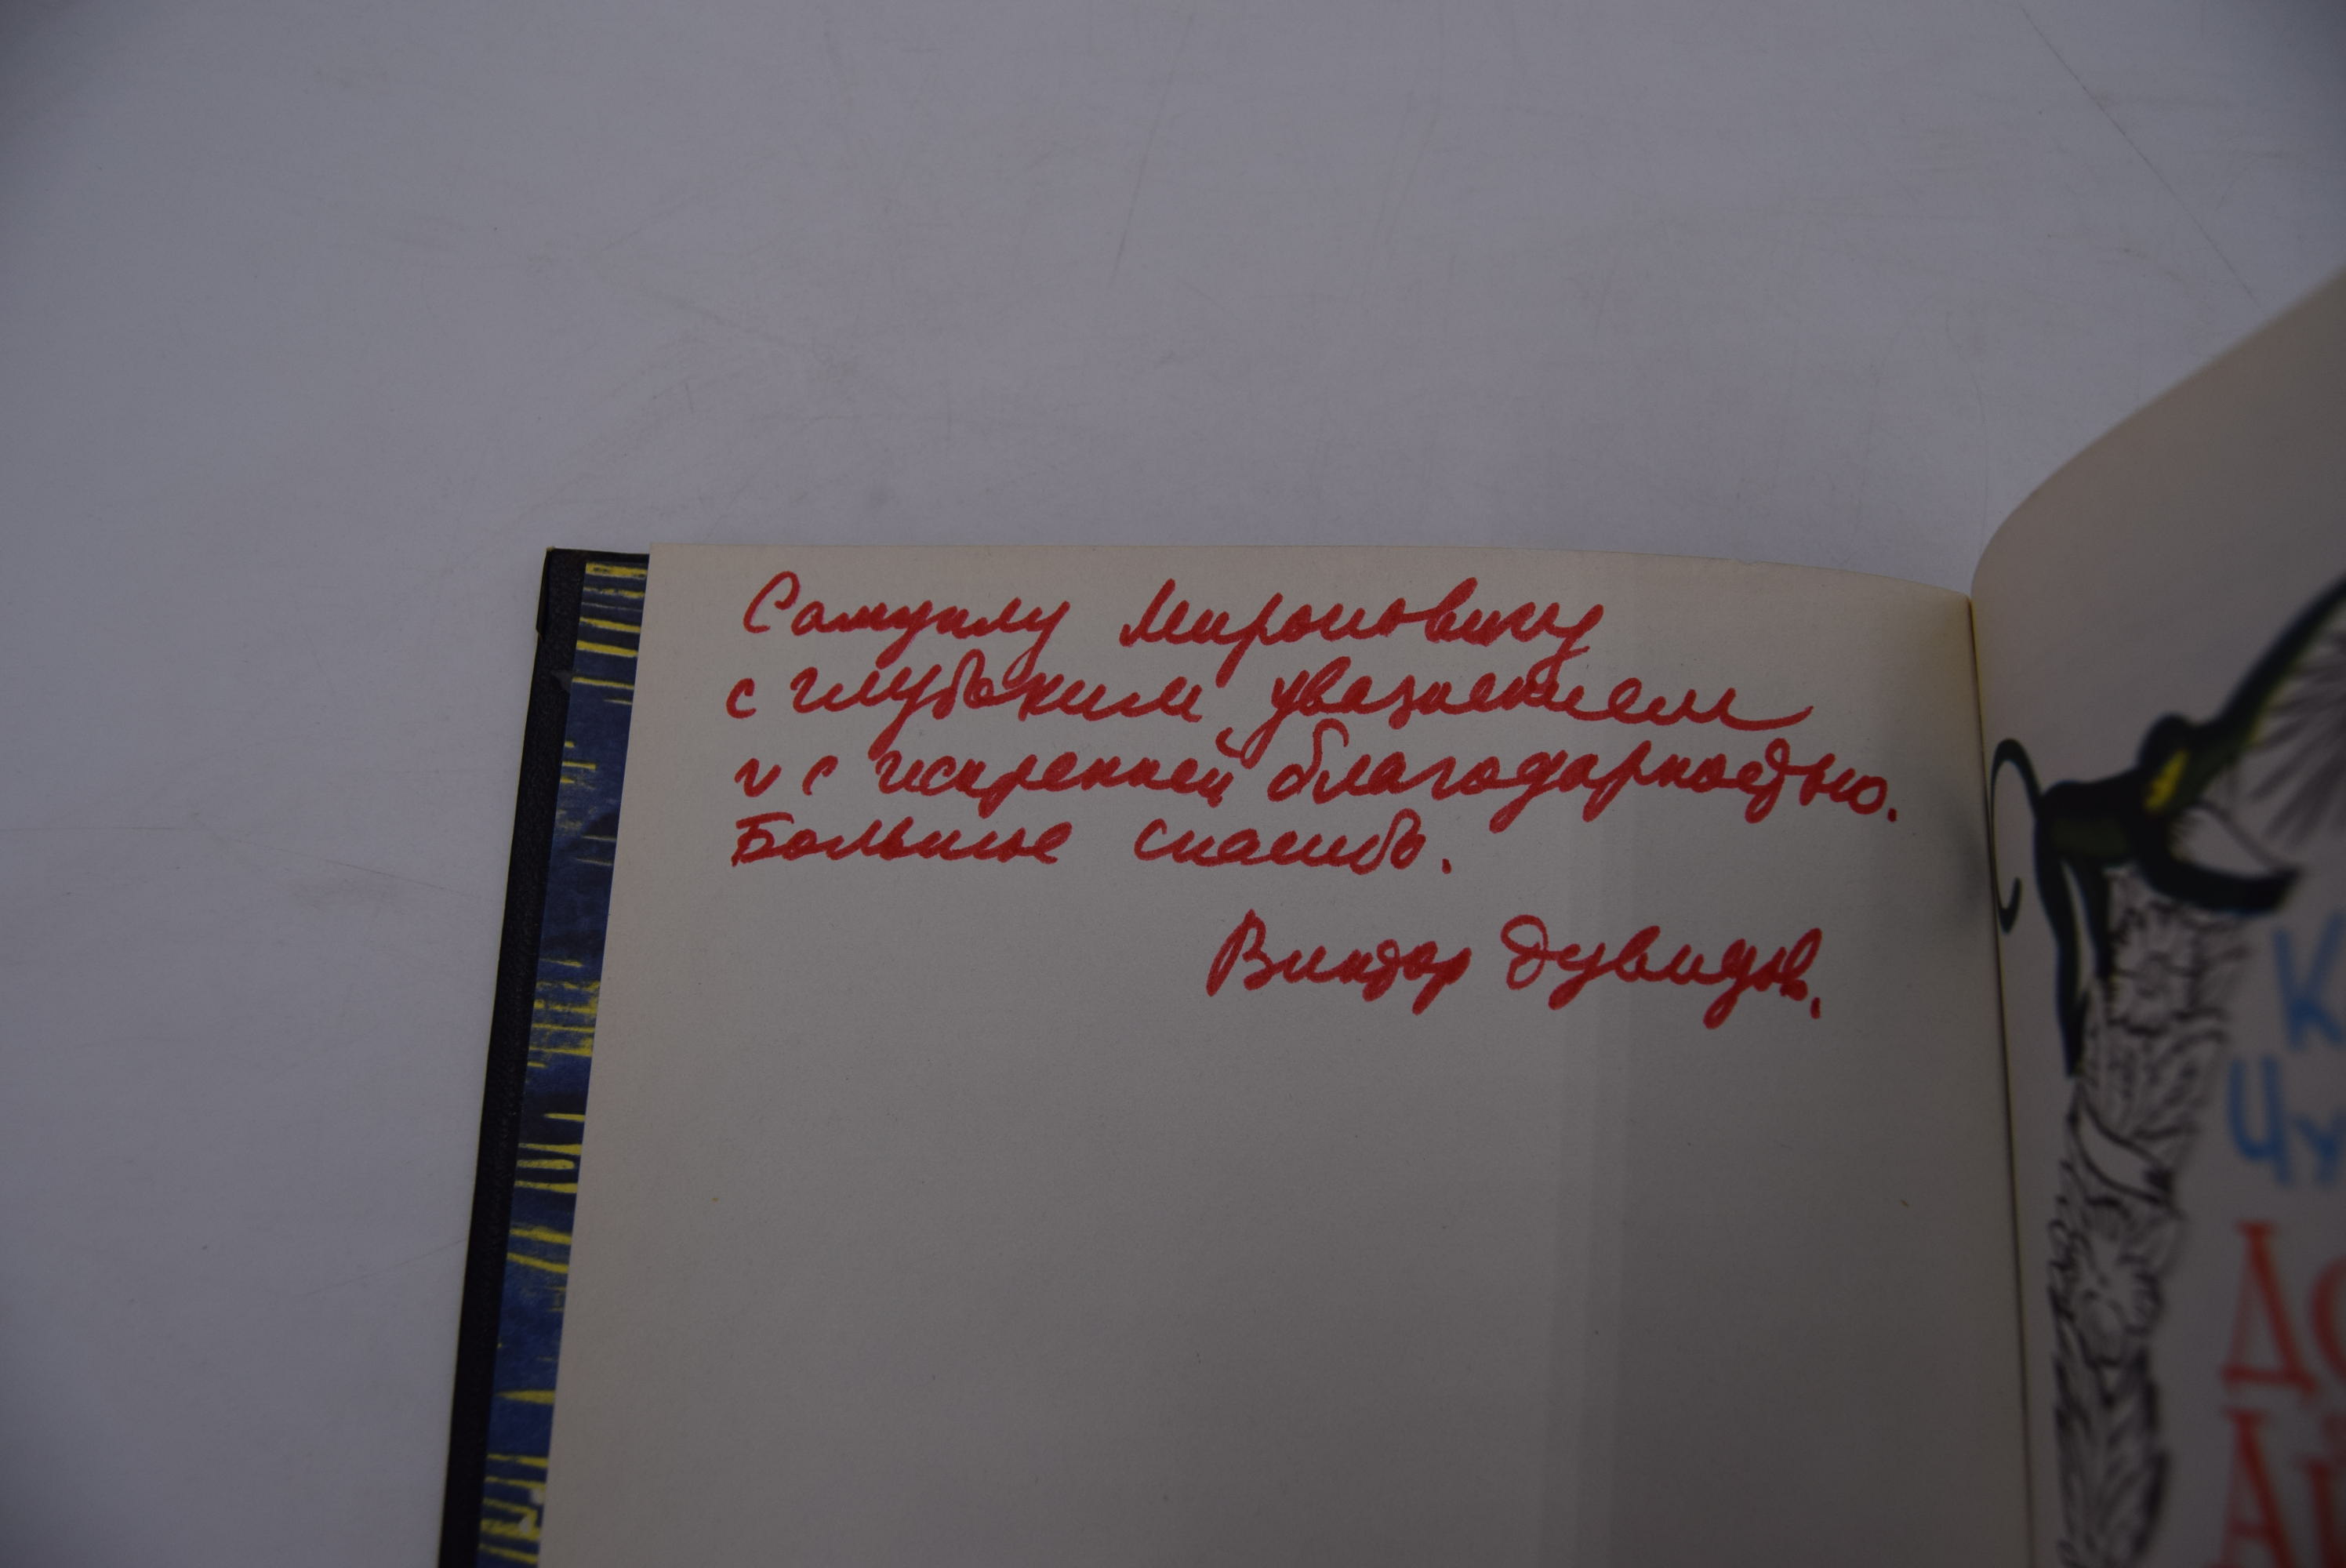 Самуилу Мироновичу
с глубоким уважением
и с искренней благодарностью.
Большое спасибо.
Виктор Дувидов.
К
Чу
ДО
АЙ